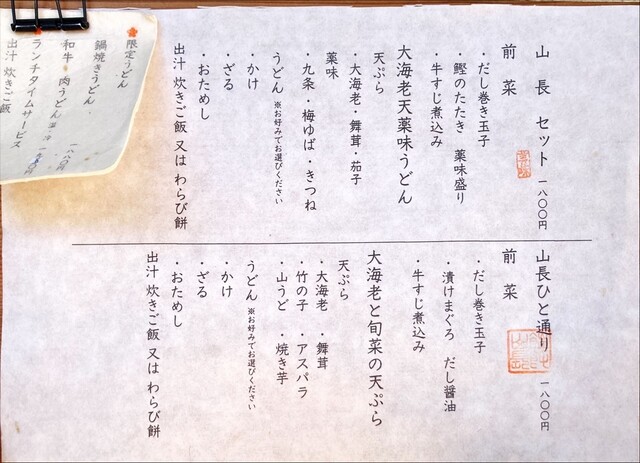 山長 セット 一八〇〇円
前菜
・だし巻き玉子
・鰹のたたき 薬味盛り
・牛すじ煮込み
大海老天薬味うどん
天ぷら
・大海老・舞茸・茄子
薬味
・九条・梅ゆば・きつね
うどん ※お好みでお選びください
・かけ
・ざる
・おためし
出汁 炊きご飯 又は わらび餅
山長ひと通り 一八〇〇円
前菜
・だし巻き玉子
・漬けまぐろ だし醤油
・牛すじ煮込み
大海老と旬菜の天ぷら
天ぷら
・大海老 ・舞茸
・竹の子 ・アスパラ
・山うど ・焼き芋
うどん ※お好みでお選びください
・かけ
・ざる
・おためし
出汁 炊きご飯 又は わらび餅
限定うどん
鍋焼きうどん
和牛 肉うどん 一八〇〇
ランチタイムサービス
出汁 炊きご飯